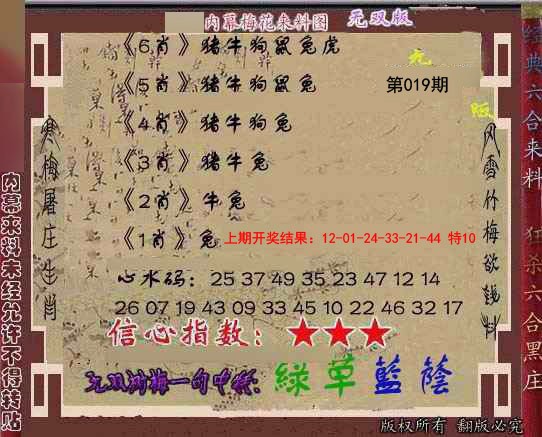 内幕梅花来料图 无双版
《6肖》猪牛狗鼠兔虎
《5肖》猪牛狗鼠兔
第019期
《4肖》猪牛狗兔
《3肖》猪牛兔
《2肖》牛兔
《1肖》兔
上期开奖结果：12-01-24-33-21-44 特10
心水码：25 37 49 35 23 47 12 14
26 07 19 43 09 33 45 10 22 46 32 17
信心指数：★★★
无双浏梅一句中特：
绿草蓝荫
寒梅屠庄生肖
风雪竹梅欲钱料
内幕来料未经允许不得转贴
经典六合来料
狂杀六合黑庄
版权所有 翻版必究